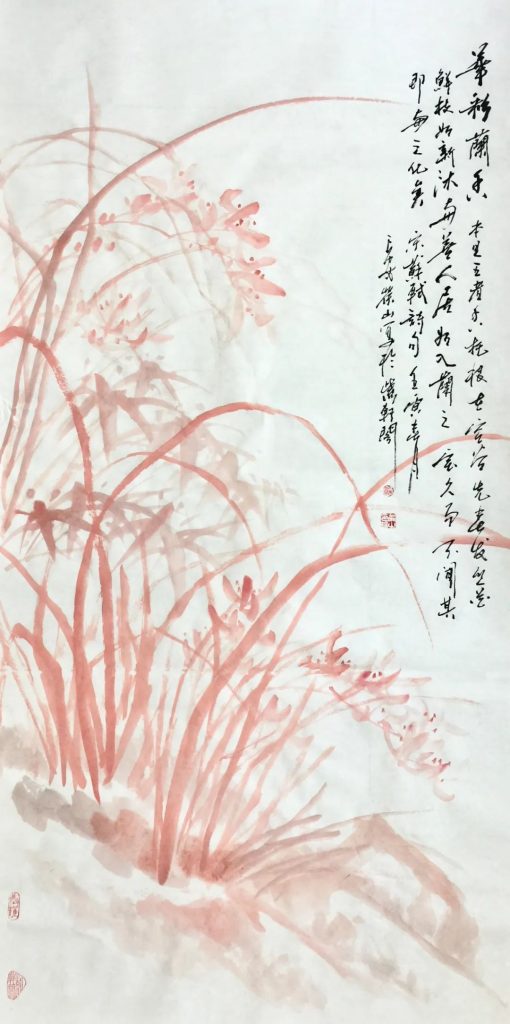 華 蘭香 本是王者香托根在空谷先春发丛花
鮮枝如新沐與善人居如入蘭之室久而不聞其
即與之化矣 宋蘇軾詩句 壬寅春月
山寫於 軒閣